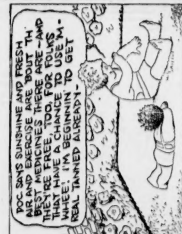 DOC SAYS SUNSHINE AND FRESH
AIR AN' EXERCISE ARE 'BOUT TH'
BEST MEDICINES THERE ARE—AND
THEY'RE FREE, TOO, FOR FOLKS
WITH A CHANCE TO USE 'EM-
WHEE! I'M BEGINNIN' TO GET
REAL TANNED ALREADY—